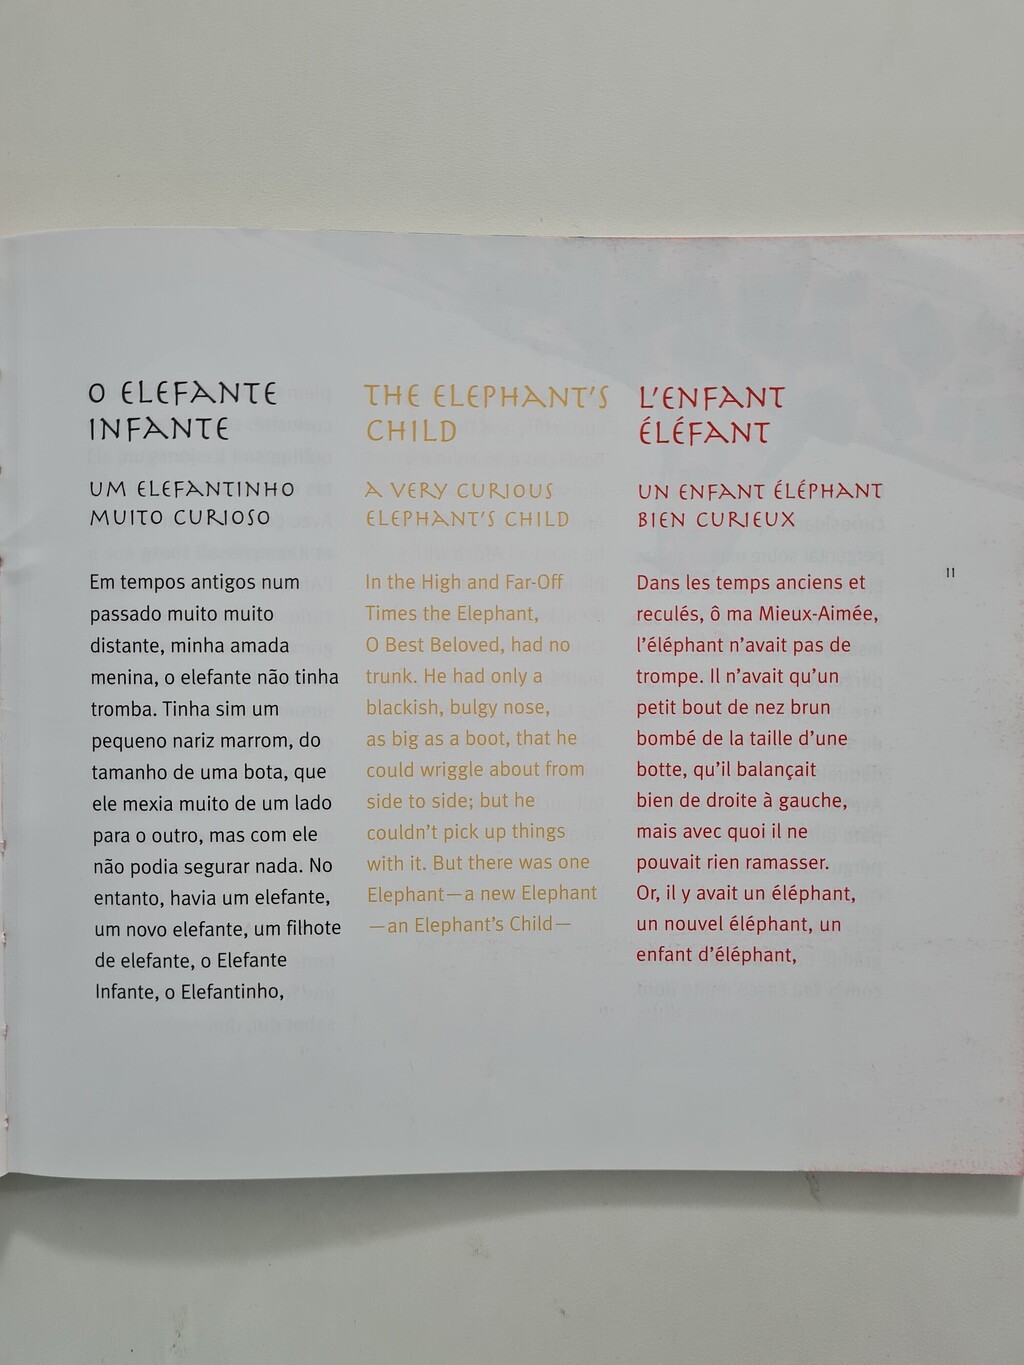 O ELEFANTE
INFANTE
UM ELEFANTINHO
MUITO CURIOSO
Em tempos antigos num
passado muito muito
distante, minha amada
menina, o elefante não tinha
tromba. Tinha sim um
pequeno nariz marrom, do
tamanho de uma bota, que
ele mexia muito de um lado
para o outro, mas com ele
não podia segurar nada. No
entanto, havia um elefante,
um novo elefante, um filhote
de elefante, o Elefante
Infante, o Elefantinho,
THE ELEPHANT'S
CHILD
A VERY CURIOUS
ELEPHANT'S CHILD
In the High and Far-Off
Times the Elephant,
O Best Beloved, had no
trunk. He had only a
blackish, bulgy nose,
as big as a boot, that he
could wriggle about from
side to side; but he
couldn't pick up things
with it. But there was one
Elephant—a new Elephant
—an Elephant's Child—
L'ENFANT
ÉLÉFANT
UN ENFANT ÉLÉPHANT
BIEN CURIEUX
Dans les temps anciens et
reculés, ô ma Mieux-Aimée,
l'éléphant n'avait pas de
trompe. Il n'avait qu'un
petit bout de nez brun
bombé de la taille d'une
botte, qu'il balançait
bien de droite à gauche,
mais avec quoi il ne
pouvait rien ramasser.
Or, il y avait un éléphant,
un nouvel éléphant, un
enfant d'éléphant,
11